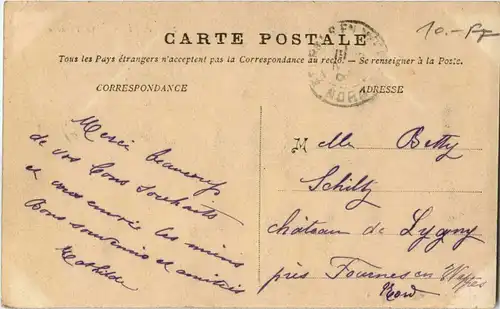 10.-
CARTE POSTALE
Tous les Pays étrangers n'acceptent pas la Correspondance au recto. — Se renseigner à la Poste.
CORRESPONDANCE
Merci beaucoup
de vos bons souhaits
et vous envoie les miens
Bons souvenirs et amitiés
Mathilde
ADRESSE
NORD
Melle Betty
Schiltz
château de Lygny
près Fournes en Weppes
Nord